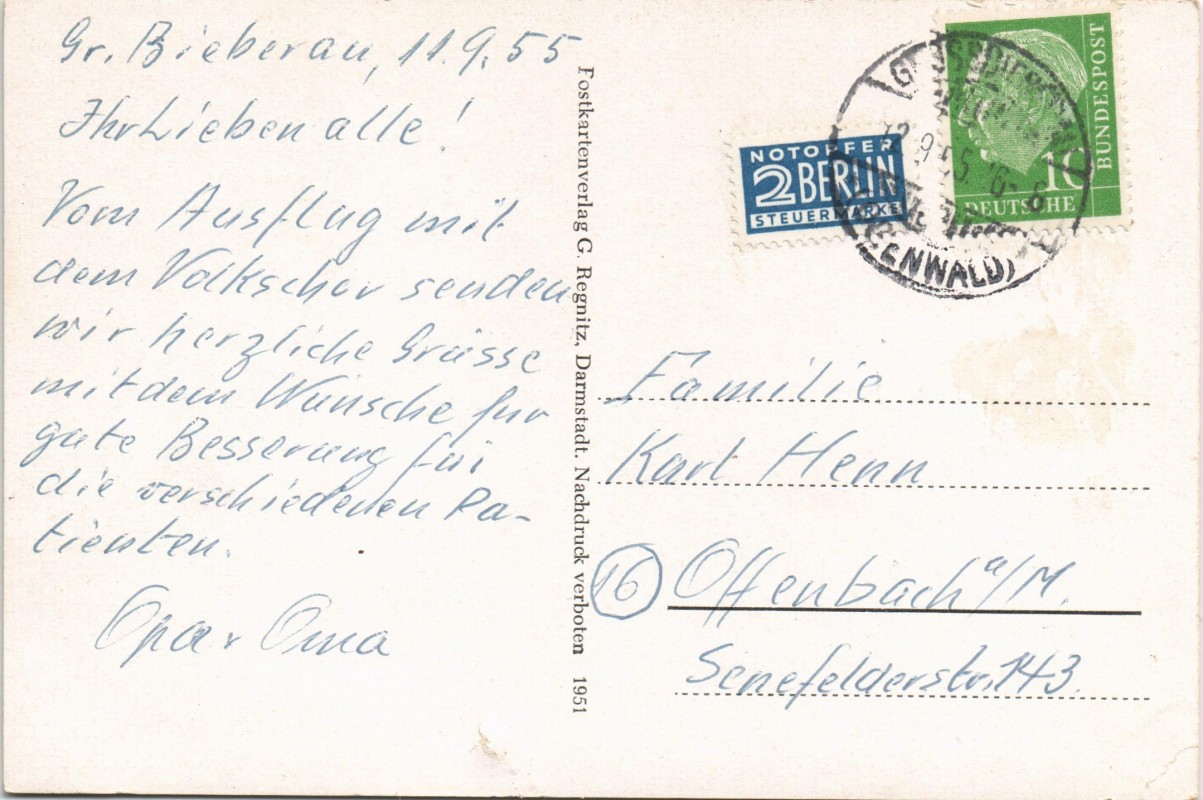 Gr. Bieberau, 11.9.55
Ihr Lieben alle!
Vom Ausflug mit
dem Volkschor senden
wir herzliche Grüsse
mit dem Wunsche fur
gute Besserung für
die verschiedenen Pa-
tienten.
Opa + Oma
Postkartenverlag G. Regnitz, Darmstadt. Nachdruck verboten 1951
NOTOPFER
2 BERLIN
STEUERMARKE
10
DEUTSCHE
BUNDESPOST
12.9.55.16
(ODENWALD)
Familie
Karl Henn
16 Offenbach a/M.
Senefelderstr. 143